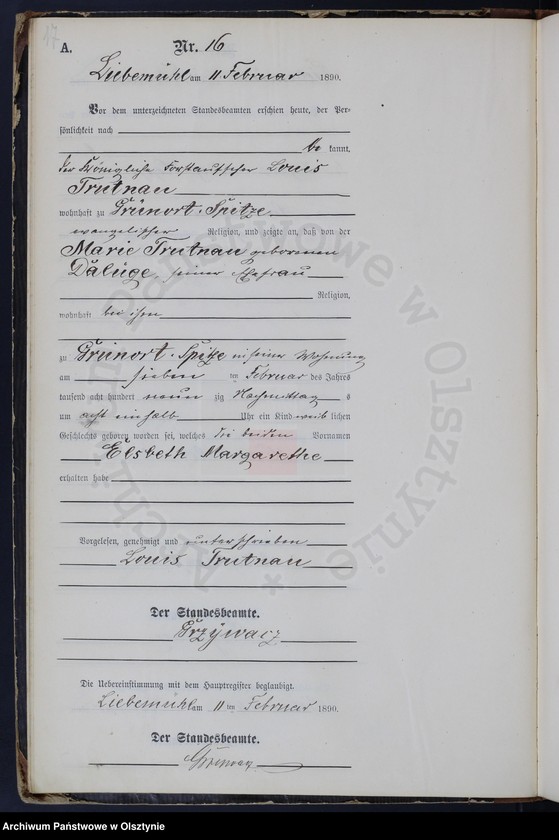 17
A. Nr. 16
Liebemühl am 11 Februar 1890.
Vor dem unterzeichneten Standesbeamten erschien heute, der Per-
sönlichkeit nach
be kannt,
der Königliche Forstaufseher Louis
Trutnau
wohnhaft zu Grünort-Spitze
evangelischer Religion, und zeigte an, daß von der
Marie Trutnau geborenen
Dalüge, seiner Ehefrau
Religion,
wohnhaft bei ihm
zu Grünort-Spitze in seiner Wohnung
am sieben ten Februar des Jahres
tausend acht hundert neun zig Nachmittag s
um acht ein halb Uhr ein Kind weib lichen
Geschlechts geboren worden sei, welches die beiden Vornamen
Elsbeth Margarethe
erhalten habe
Vorgelesen, genehmigt und unterschrieben
Louis Trutnau
Der Standesbeamte.
Grzywacz
Die Uebereinstimmung mit dem Hauptregister beglaubigt.
Liebemühl am 11 ten Februar 1890.
Der Standesbeamte.
Archiwum Państwowe w Olsztynie *
Archiwum Państwowe w Olsztynie